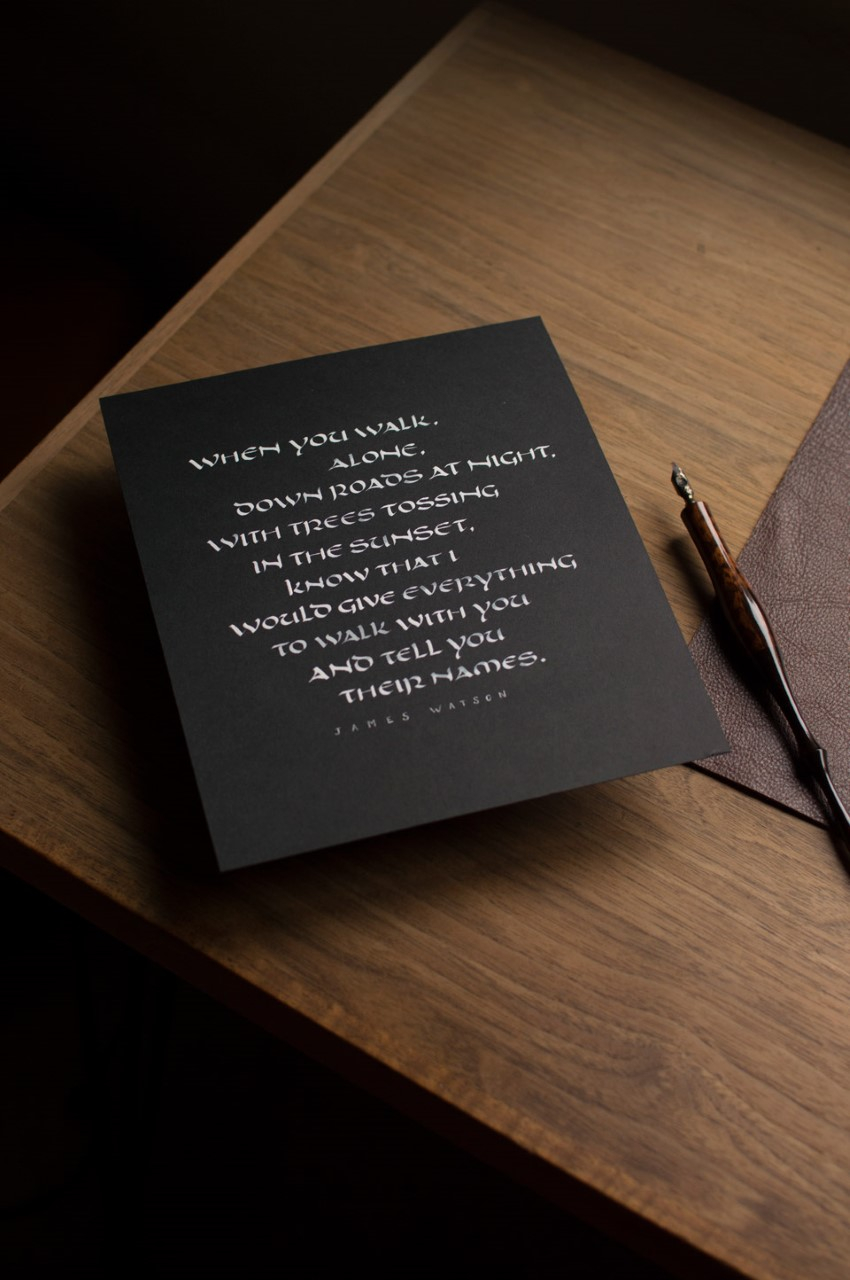 WHEN YOU WALK,
ALONE,
DOWN ROADS AT NIGHT,
WITH TREES TOSSING
IN THE SUNSET,
KNOW THAT I
WOULD GIVE EVERYTHING
TO WALK WITH YOU
AND TELL YOU
THEIR NAMES.
JAMES WATSON